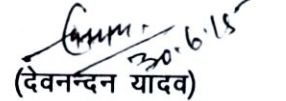 30.6.15
(देवनन्दन यादव)